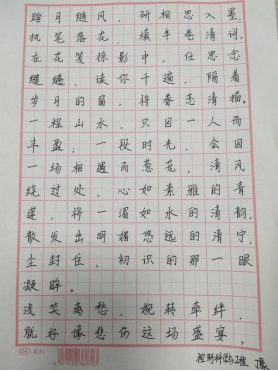 踏月随风，研相思入墨，
执笔落花，填半卷清词，
在花笺掠影中，任思念
缱绻，读你千遍，隔着
岁月的窗，将眷恋清描。
一程山水，只因一人而
丰盈；一段时光，会因
一场相遇而葱茏，清风
绕过处，心如素雅的青
莲，将一湄如水的清韵，
散发出明媚悠远的清宁，
尘封住，初识的那一眼
凝眸。
浅笑离愁，婉转牵绊，
就好像悲伤这场盛宴，
控制科学与工程